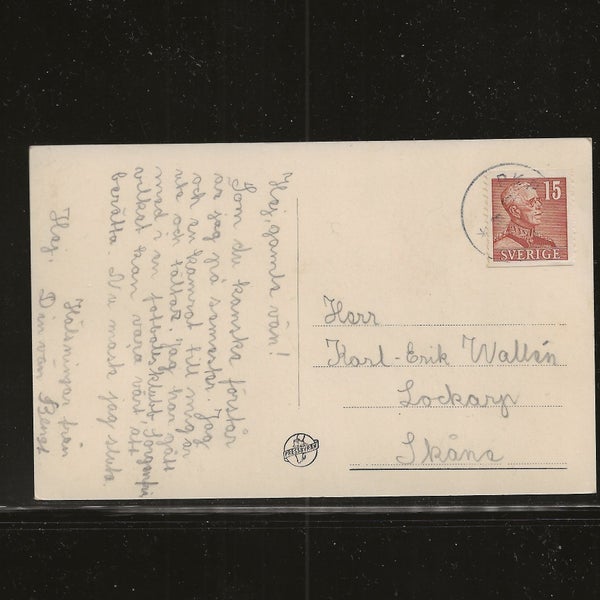 Hej, gamle vän!
Som du kanske förstår
är jag på semester. Jag
och en kamrat till mig är
ute och tältar. Jag har gått
med i en fotbollsklubb
vilket kan vara värt att
berätta. Nu måste jag sluta.
Hälsningar från
Din vän Bengt
Hej.
15
SVERIGE
Herr
Karl-Erik Wallén
Lockarp
Skåne
PRESSBYRÅN